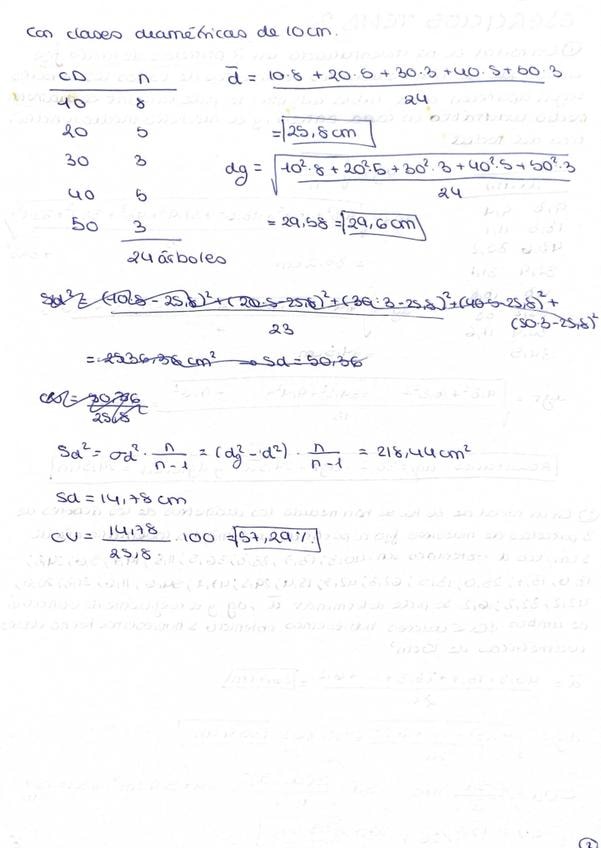 Con clases diamétricas de 10cm.
CD n
10 8
20 5
30 3
40 5
50 3
24 árboles
d̄ = (10·8 + 20·5 + 30·3 + 40·5 + 50·3) / 24
= 25,8 cm
dg = √((10²·8 + 20²·5 + 30²·3 + 40²·5 + 50²·3) / 24)
= 29,58 = 29,6 cm
Sd² = ((10·8 - 25,8)² + (20·5 - 25,8)² + (30·3 - 25,8)² + (40·5 - 25,8)² + (50·3 - 25,8)²) / 23
= 2536,36 cm² → Sd = 50,36
Sd² = σd² · n/(n-1) = (dg² - d̄²) · n/(n-1) = 218,44 cm²
Sd = 14,78 cm
CV = 14,78/25,8 100 = 57,29%
2